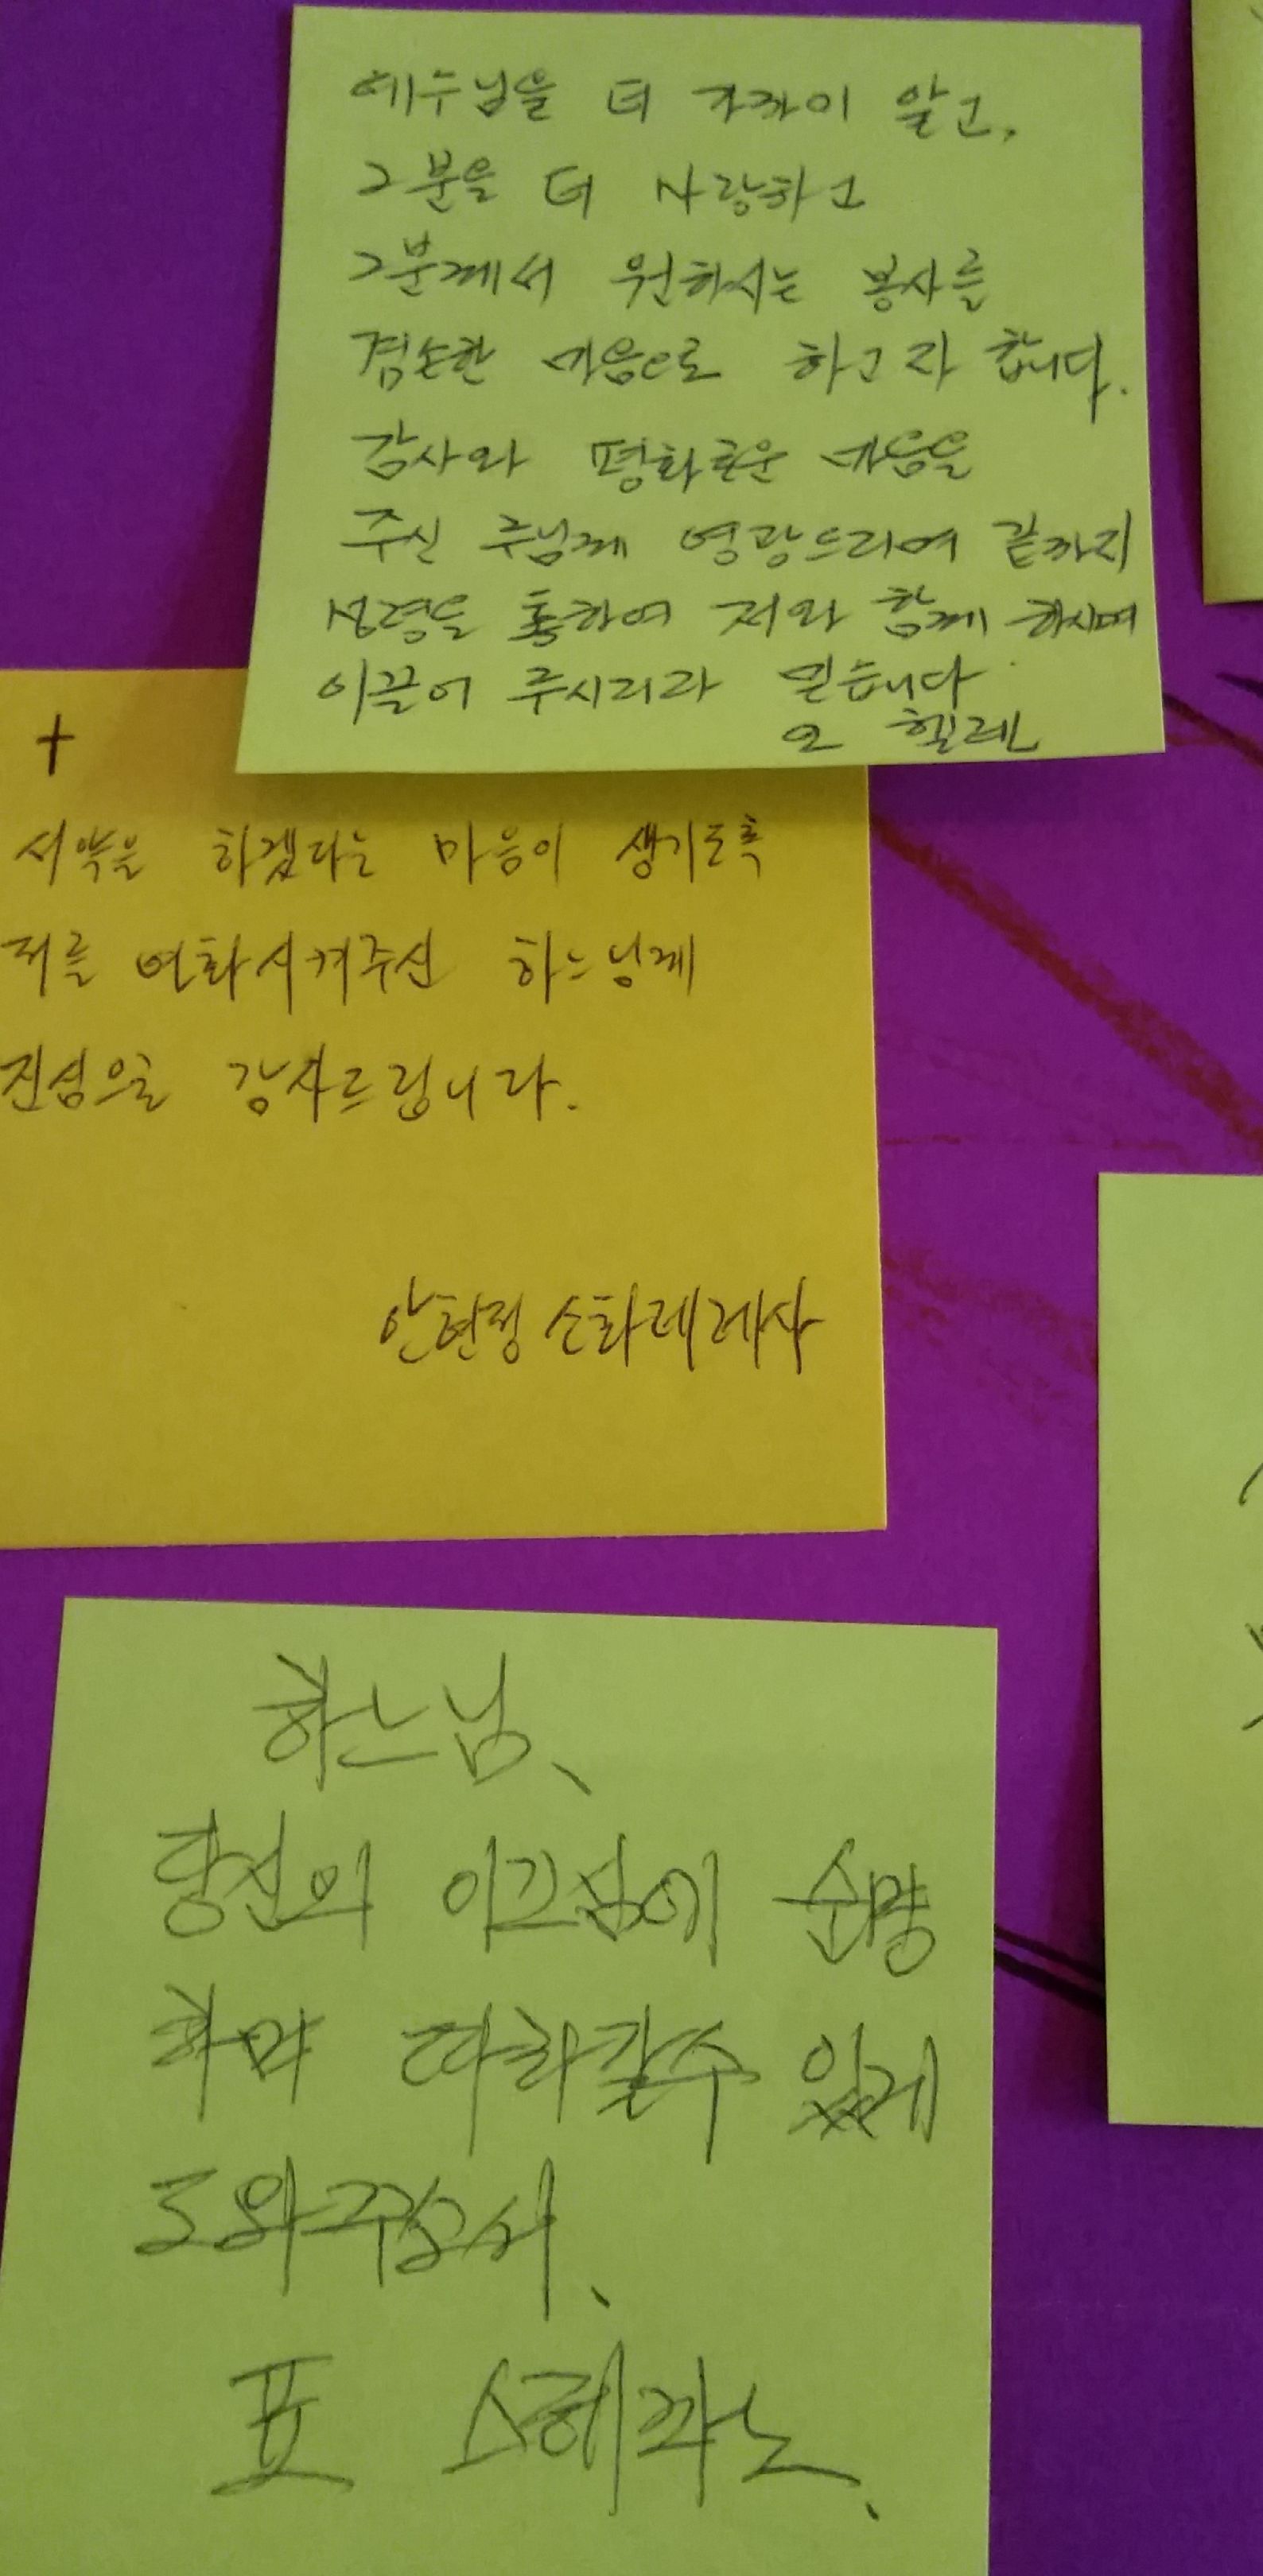 예수님을 더 가까이 알고,
그분을 더 사랑하고
그분께서 원하시는 봉사를
겸손한 마음으로 하고자 합니다.
감사와 평화로운 마음을
주신 주님께 영광드리며 끝까지
성령을 통하여 저와 함께 하시며
이끌어 주시리라 믿습니다
오 헬레나
서약을 하겠다는 마음이 생기도록
저를 변화시켜주신 하느님께
진심으로 감사드립니다.
안현정 소화데레사
하느님、
당신의 이끄심에 순명
하며 따라갈수 있게
도와주십시오、
표 스테파노、